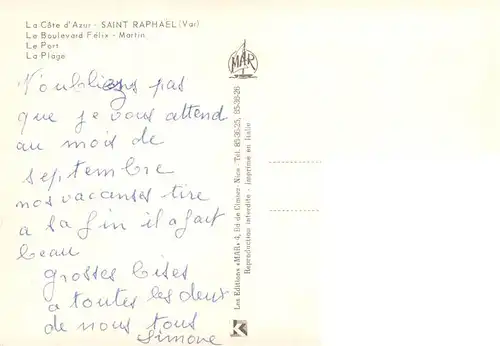 La Côte d'Azur - SAINT RAPHAËL (Var)
Le Boulevard Félix - Martin
Le Port
La Plage
N'oubliens pas
que je vous attend
au mois de
septembre
nos vacanses tire
a sa fin il a fait
beau
grosses bises
a toutes les deux
de nous tous
Simone
MAR
Les Editions «MAR» 4, Bd de Cimiez - Nice Tél. 85-36-25, 85-36-26
Reproduction interdite - Imprimé en Italie
K